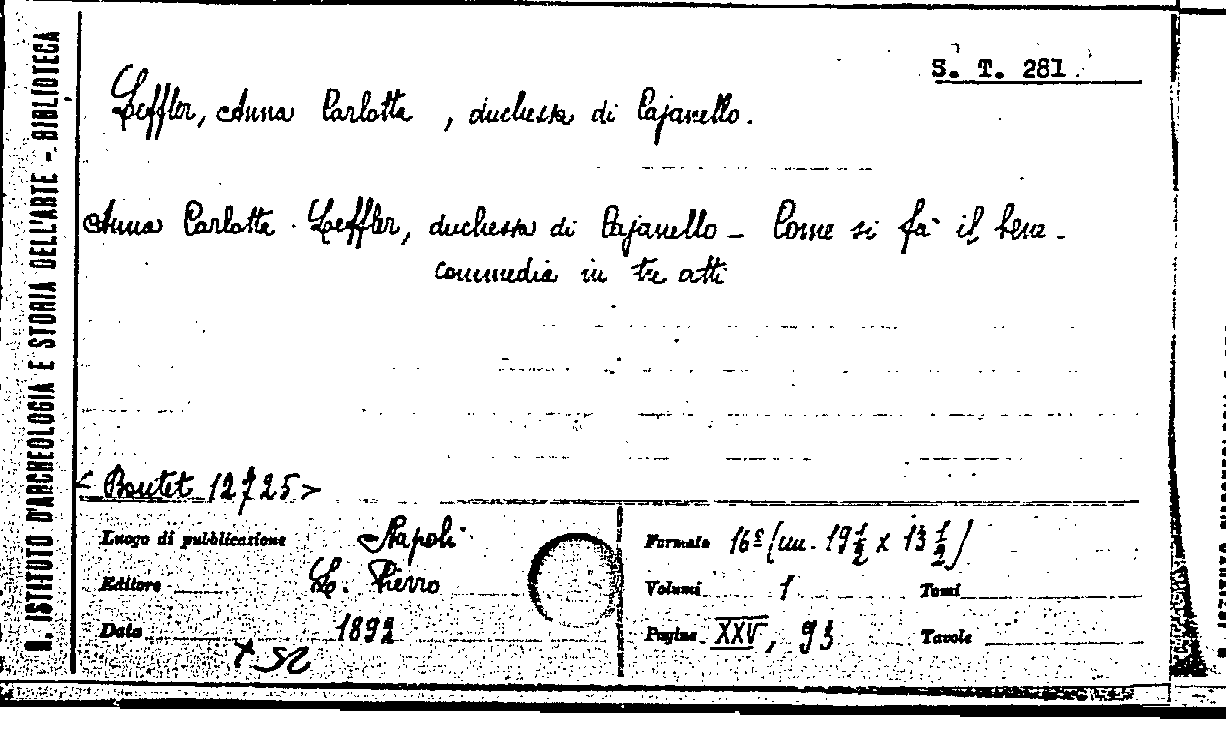 S. T. 281
Leffler, Anna Carlotta, duchessa di Cajanello.
Anna Carlotta Leffler, duchessa di Cajanello - Come si fà il bene -
commedia in tre atti
< Boutet 12725 >
Luogo di pubblicazione Napoli
Editore L. Pierro
Data 1892
Formato 16º (cm. 19 1/2 x 13 1/2)
Volumi 1 Tomi
Pagine XXV, 93 Tavole
R. ISTITUTO D'ARCHEOLOGIA E STORIA DELL'ARTE - BIBLIOTECA